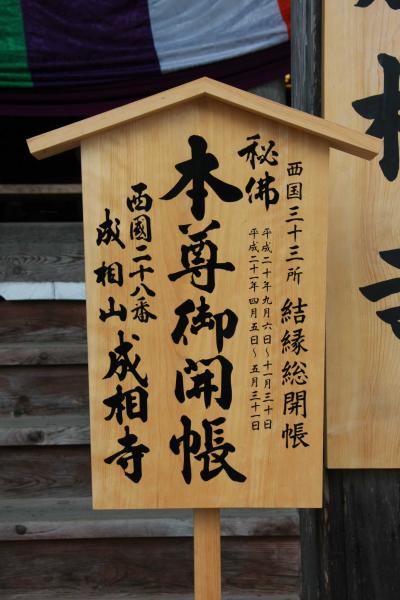 西国三十三所 結縁総開帳
平成二十年九月六日〜十一月三十日
平成二十一年四月五日〜五月三十一日
秘佛
本尊御開帳
西國二十八番
成相山成相寺
相寺